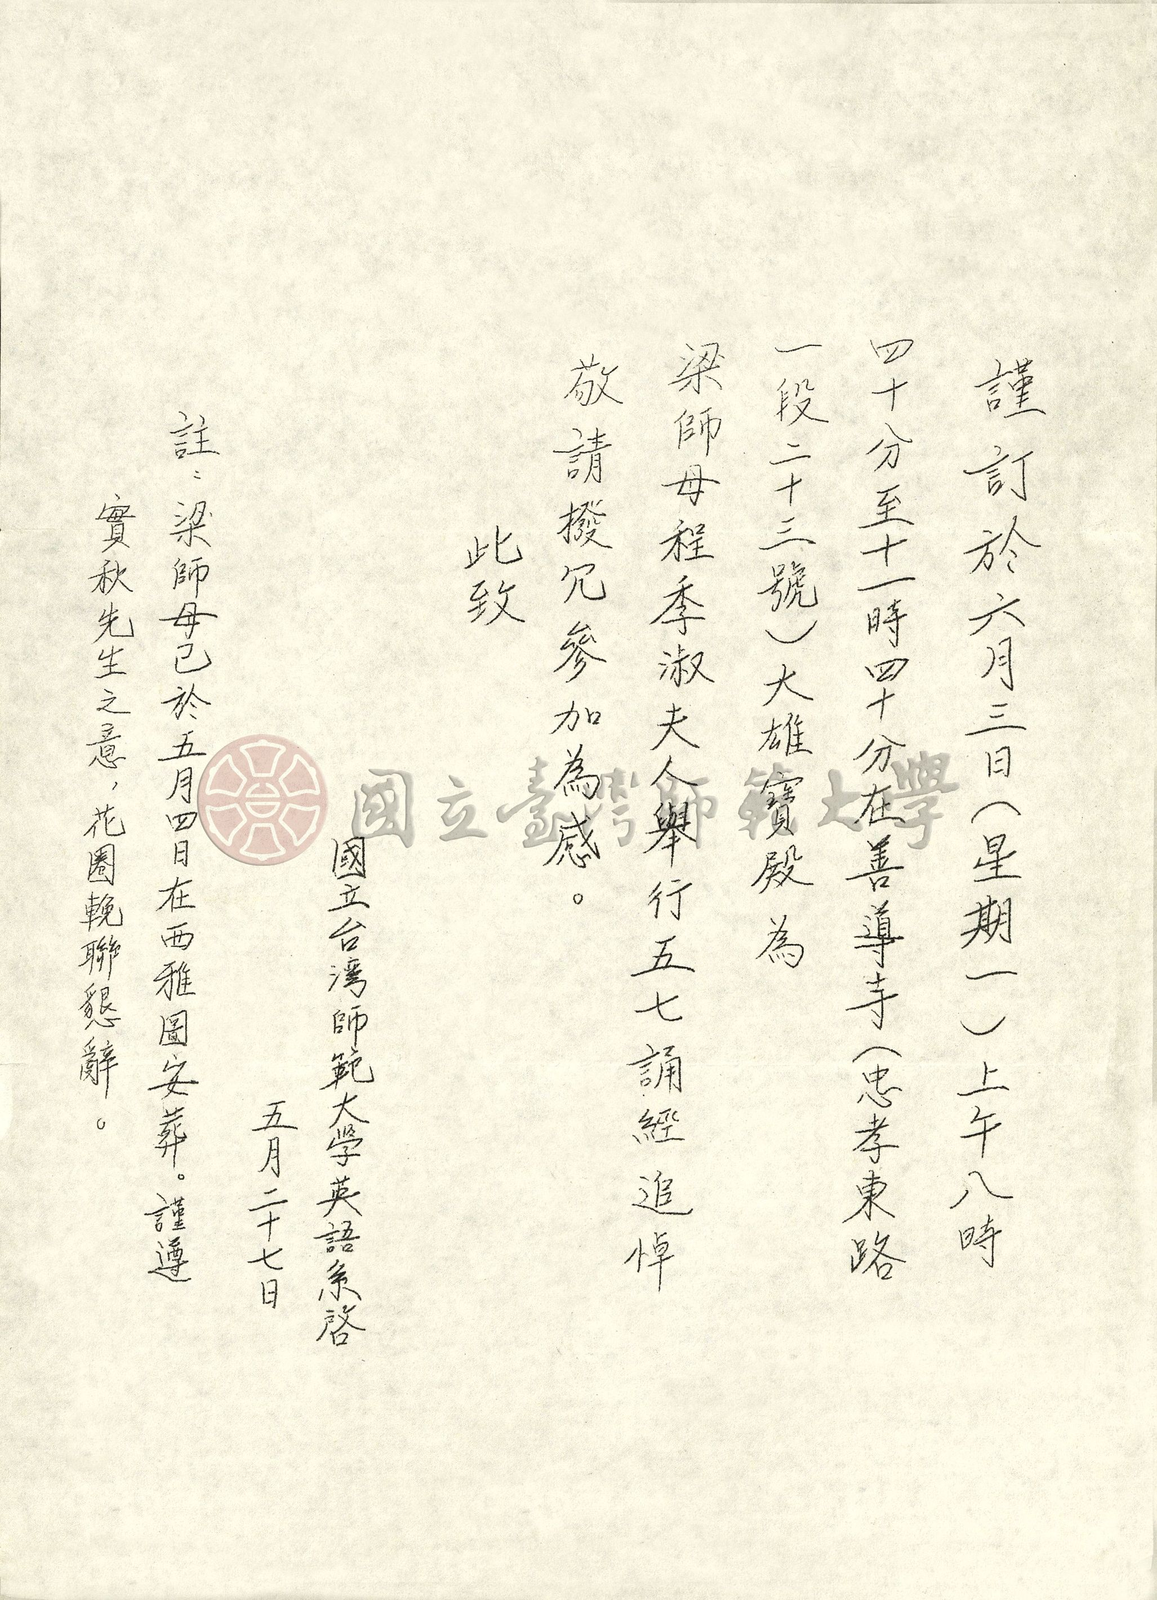 謹訂於六月三日(星期一)上午八時
四十分至十一時四十分在善導寺(忠孝東路
一段二十三號)大雄寶殿為
梁師母程季淑夫人舉行五七誦經追悼
敬請撥冗參加為感。
此致
國立台灣師範大學英語系啓
五月二十七日
註:梁師母已於五月四日在西雅圖安葬。謹遵
實秋先生之意,花圈輓聯懇辭。
國立臺灣師範大學